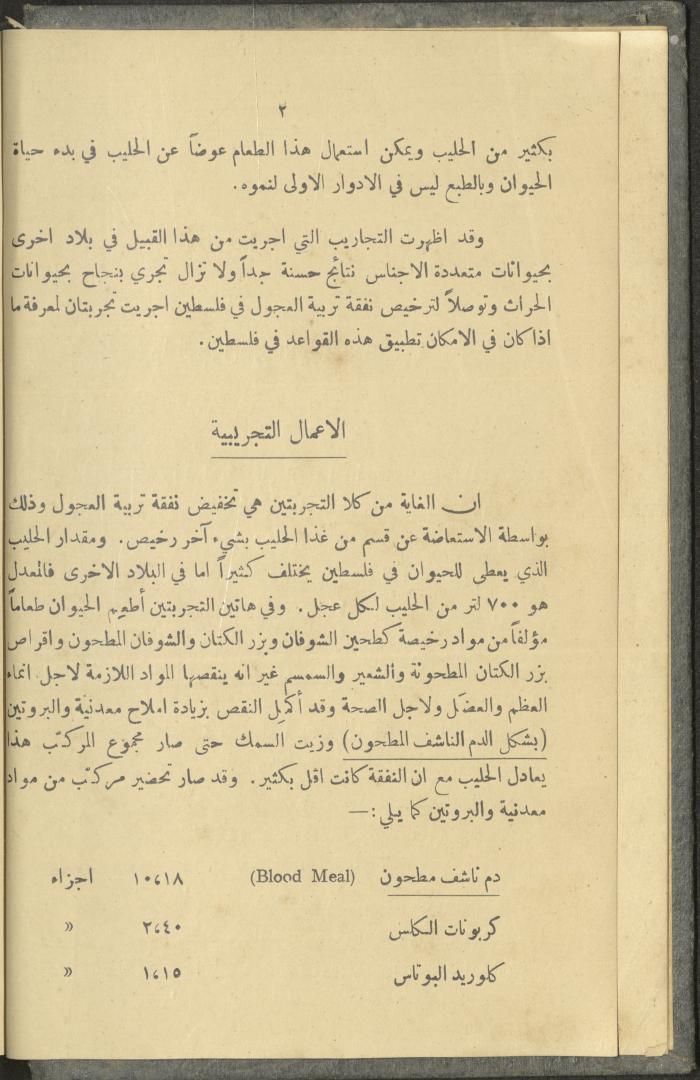 ٢
بكثير من الحليب ويمكن استعمال هذا الطعام عوضاً عن الحليب في بدء حياة
الحيوان وبالطبع ليس في الادوار الاولى لنموه.
وقد اظهرت التجاريب التي اجريت من هذا القبيل في بلاد اخرى
بحيوانات متعددة الاجناس نتائج حسنة جداً ولا تزال تجري بنجاح بحيوانات
الحراث وتوصلاً لترخيص نفقة تربية العجول في فلسطين اجريت تجربتان لمعرفة ما
اذا كان في الامكان تطبيق هذه القواعد في فلسطين.
الاعمال التجريبية
ان الغاية من كلا التجربتين هي تخفيض نفقة تربية العجول وذلك
بواسطة الاستعاضة عن قسم من غذا الحليب بشيء آخر رخيص. ومقدار الحليب
الذي يعطى للحيوان في فلسطين يختلف كثيراً اما في البلاد الاخرى فالمعدل
هو ٧٠٠ لتر من الحليب لكل عجل. وفي هاتين التجربتين أطعم الحيوان طعاماً
مؤلفاً من مواد رخيصة كطحين الشوفان وبزر الكتان والشوفان المطحون واقراص
بزر الكتان المطحونة والشعير والسمسم غير انه ينقصها المواد اللازمة لاجل انماء
العظم والعضل ولاجل الصحة وقد أكمل النقص بزيادة املاح معدنية والبروتين
(بشكل الدم الناشف المطحون) وزيت السمك حتى صار مجموع المركب هذا
يعادل الحليب مع ان النفقة كانت اقل بكثير. وقد صار تحضير مركب من مواد
معدنية والبروتين كما يلي:—
دم ناشف مطحون (Blood Meal) ١٠،١٨ اجزاء
كربونات الكلس ٢،٤٠ »
كلوريد البوتاس ١،١٥ »